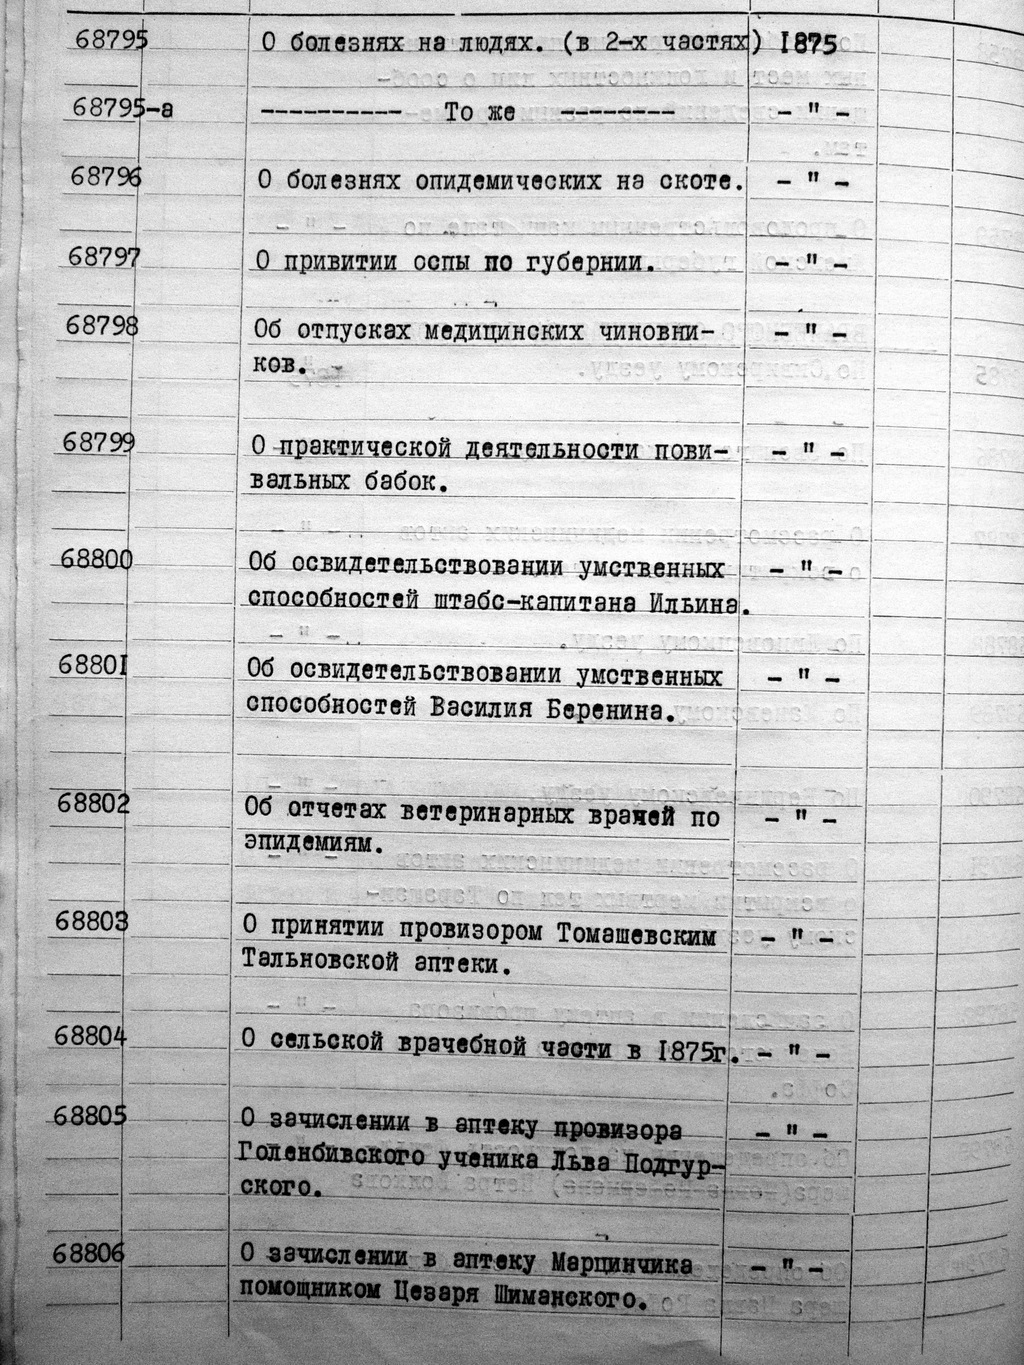 68795 О болезнях на людях. (в 2-х частях) 1875
68795-а ----------- То же -------- - " -
68796 О болезнях опидемических на скоте. - " -
68797 О привитии оспы по губернии. - " -
68798 Об отпусках медицинских чиновни- - " -
ков.
68799 О практической деятельности пови- - " -
вальных бабок.
68800 Об освидетельствовании умственных - " -
способностей штабс-капитана Ильина.
68801 Об освидетельствовании умственных - " -
способностей Василия Беренина.
68802 Об отчетах ветеринарных врачей по - " -
эпидемиям.
68803 О принятии провизором Томашевским - " -
Тальновской аптеки.
68804 О сельской врачебной части в 1875г. - " -
68805 О зачислении в аптеку провизора - " -
Голенбивского ученика Льва Подгур-
ского.
68806 О зачислении в аптеку Марцинчика - " -
помощником Цезаря Шиманского.